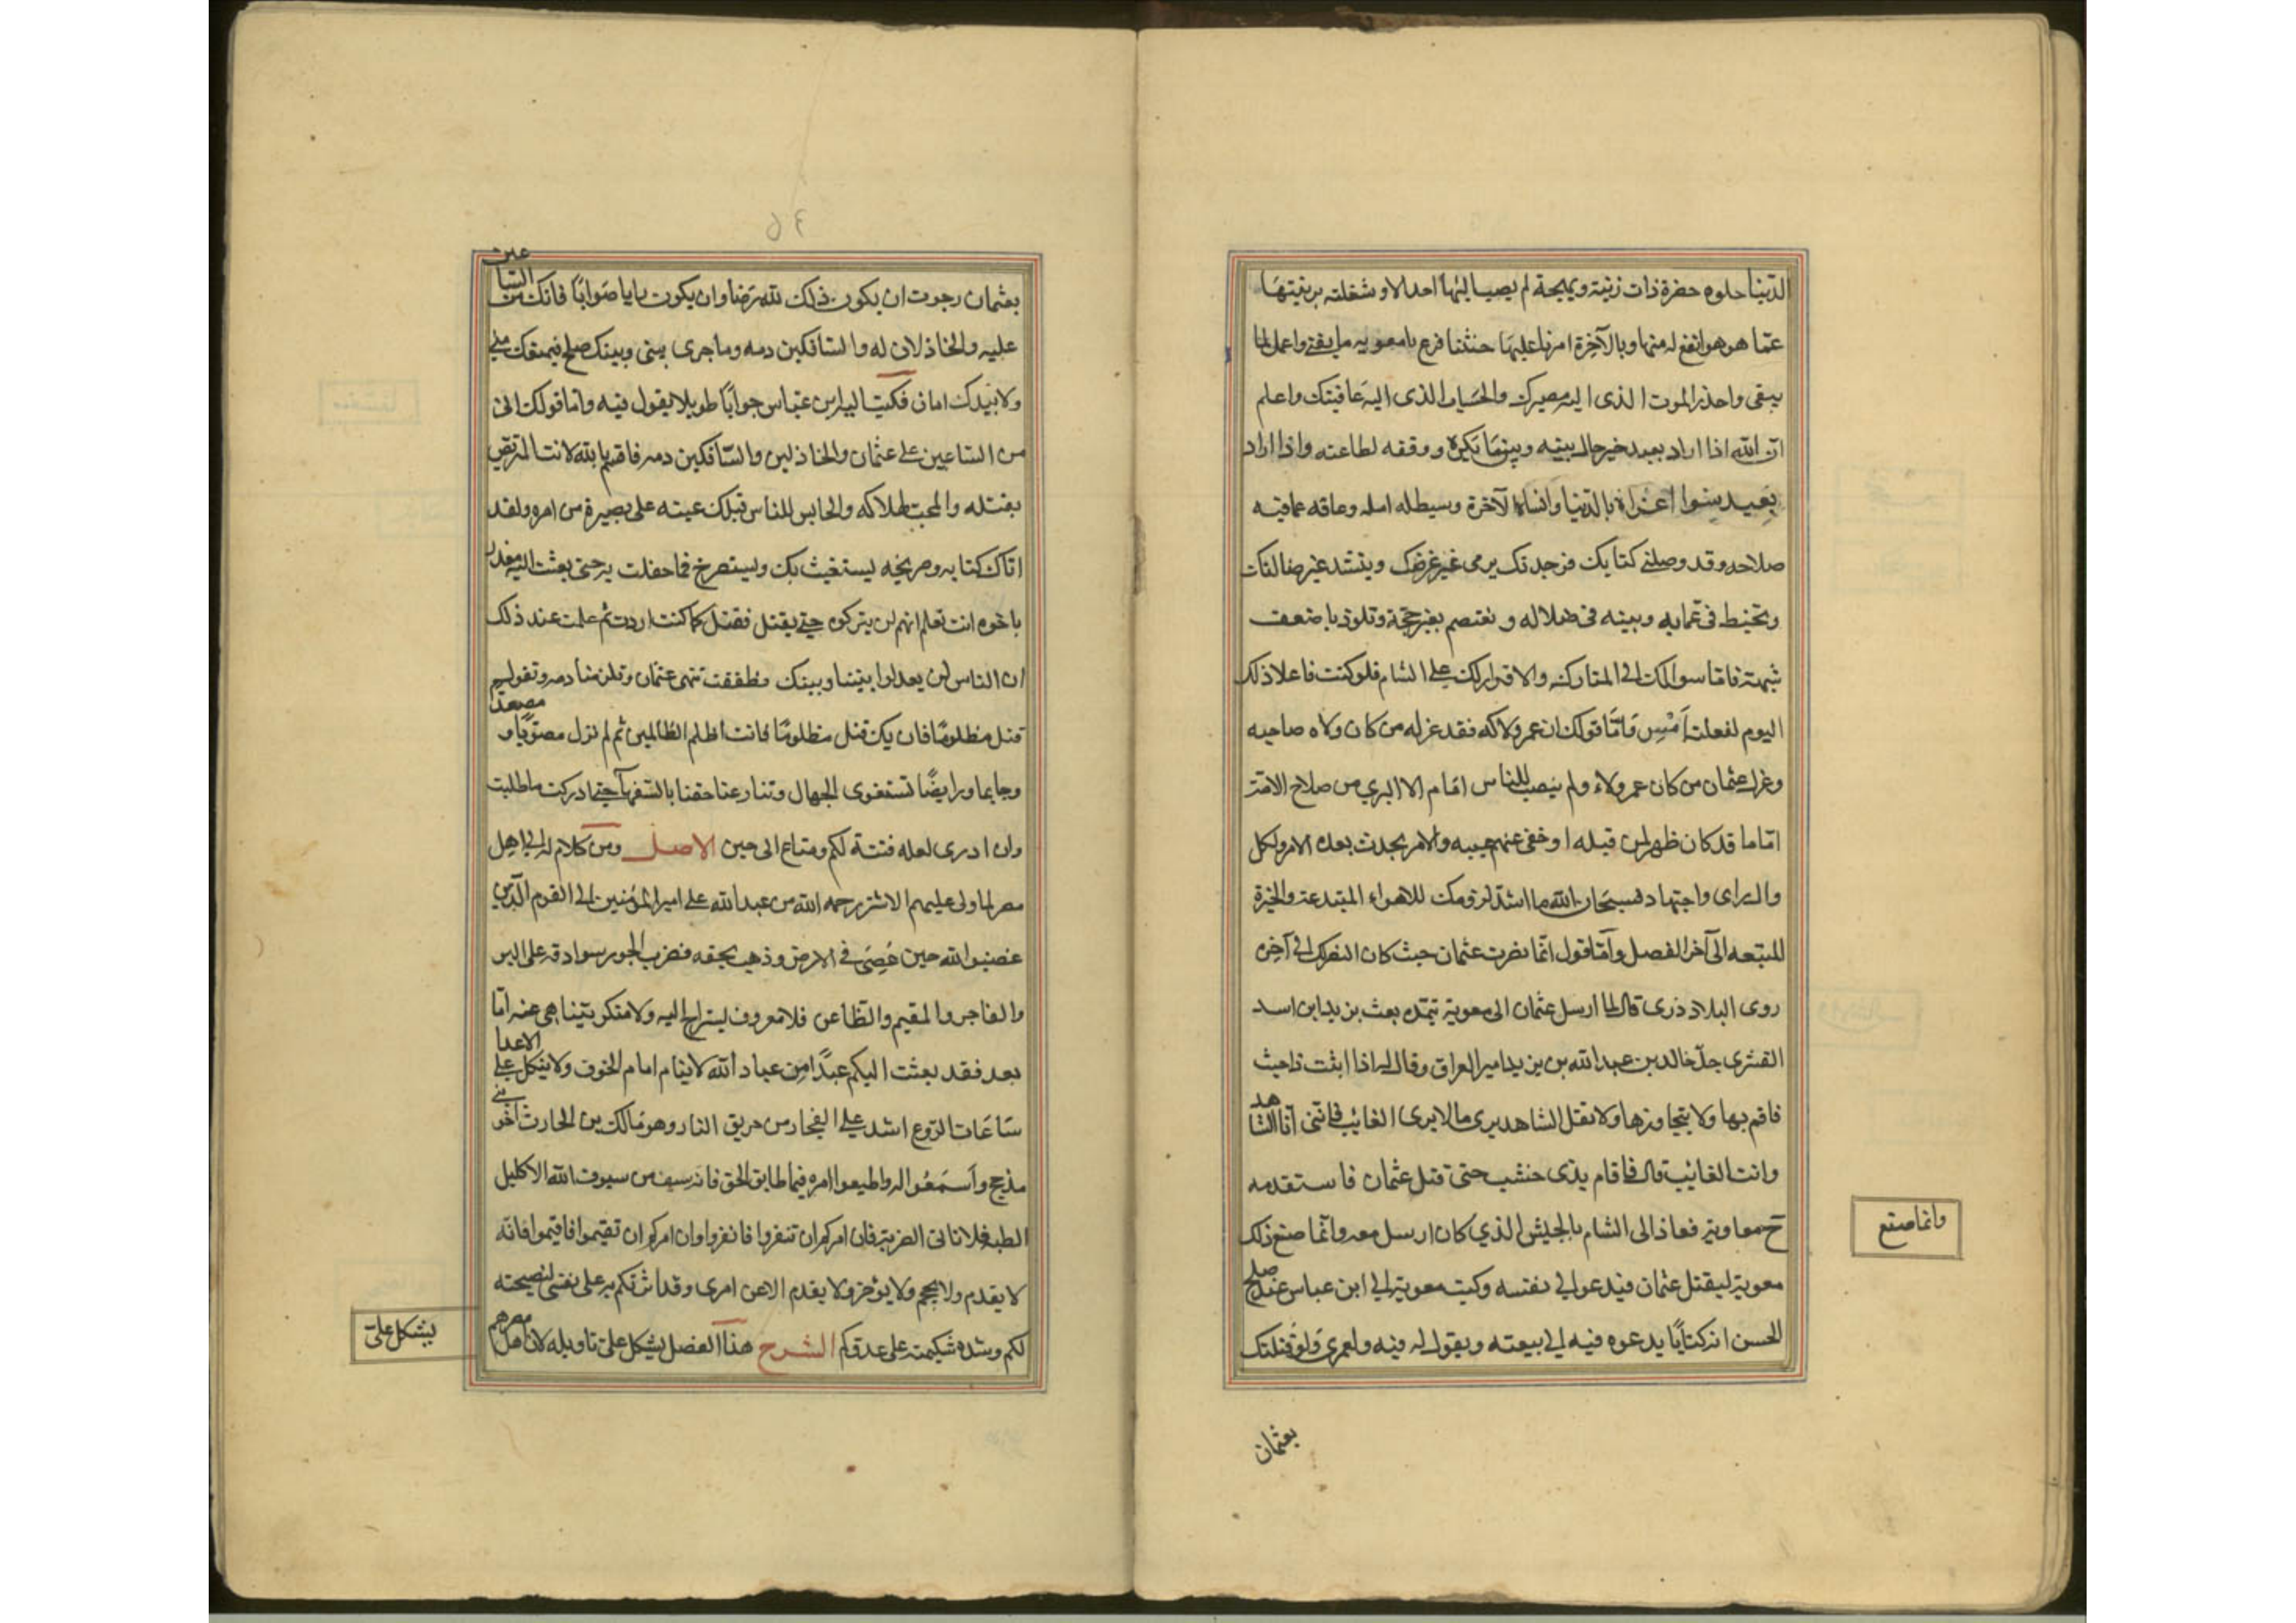 الدّنيا حلوه حضرة ذات زينة وبهجة لم يصب اليها احد الا وشغلته بزينتها
عمّا هو هو انفع له منها وبالآخرة امرنا عليها حثثنا فدع يا معويه ما يفنى واعمل لما
يبقى واحذر الموت الذى اليه مصيرك والحساب الذى اليه عاقبتك واعلم
ان الله اذا اراد بعبد خير حال بينه وبين ما يكره ووفقه لطاعته واذا اراد
بعبد سوا اغراه بالدّنيا وانساه الآخرة وبسط له امله وعاقه عمّا فيه
صلاحه وقد وصلنى كتابك فوجدتك يرمى غير غرضك وينشد غير ضالتك
وتخبط فى عمايه وبيته فى ضلاله و تعتصم بغير حجّة وتلوذ باضعف
شبهة فامّا سوالك الى المتاركه والاقرار لك على الشام فلو كنت فاعلا ذلك
اليوم لفعلت امس وامّا قولك ان عمر ولاكه فقد عزله من كان ولاه صاحبه
وعزل عثمان من كان عمر ولاه ولم ينصب للناس امام الا اليرى من صلاح الامّة
امّا ما قد كان ظهر لمن قبله اوخفى عنهم عيبه والامر يحدث بعده الامر ولكل
وال راى واجتهاد فسبحان الله ما اشدّ لزومك للاهواء المبتدعة والحيرة
المتبعه الى آخر الفصل وامّا قول انّما نصرت عثمان حيث كان النصر لك الى آخره
روى البلاذرى قال لما ارسل عثمان الى معوية يتمده بعث بن يد ابن اسد
القشرى جدّ خالد بن عبد الله بن يزيد امير العراق وقال له اذا اتيت ذاحيث
فاقم بها ولا يتجاوزها ولا تقل الشاهد يرى ما لا يرى الغايب فانّنى انا الشاهد
وانت الغايب قال فاقام بذى خشب حتى قتل عثمان فاستقدمه
ح معاوية فعاذ الى الشام بالجيش الذي كان ارسل معه وانّما صنع ذلك
معوية ليقتل عثمان فيدعو الى نفسه وكتب معوية الى ابن عباس عند صلح
الحسن له كتابًا يدعوه فيه الى بيعته ويقول له فيه ولعمرى ولو قتلتك
وانما صنع
بعثمان
٥٤
بعثمان رجوت ان يكون ذلك لله رضا وان يكون رايا صوابًا فانك من الساعين
عليه والخاذلان له والسافكين دمه وما جرى بينى وبينك صلح فيمنعك منى
ولا بيدك امان فكتب اليه ابن عبّاس جوابًا طويلا يقول فيه وامّا قولك انى
من الساعين على عثمان والخاذلين والسّافكين دمه فاقسم بالله لانت المتربّص
بقتله والمحب لهلاكه والحابس الناس قبلك عنه على بصيرة من امره ولقد
اتاك كتابه وصريخه يستغيث بك ويستصرخ فما حفلت به حتى بعثت اليه معذرا
باخره انت تعلم انهم لن يتركوه حتى يقتل فقتل كما كنت اردت ثم علمت عند ذلك
ان الناس لن يعدلوا بيننا وبينك فطفقت تنعى عثمان وتلزمنا دمه وتقول
قتل مظلومًا فان يك قتل مظلومًا فانت اظلم الظالمين ثم لم تزل مصوّبًا و مصعدا
وجايما ورايضًا تستغوى الجهال وتنازعنا حقنا بالسّفهآ حتى ادركت ما طلبت
وان ادرى لعله فتنة لكم ومتاع الى حين الاصل ومن كلام له الى اهل
مصر لما ولى عليهم الاشتر رحمه الله من عبد الله على امير المؤمنين الى القوم الّذين
غضبوا لله حين عُصِىَ فى الارض وذهب بحقه فضرب الجور سرادقه على البر
والفاجر والمقيم والظاعن فلا معروف يستراح اليه ولا منكر يتناهى عنه امّا
بعد فقد بعثت اليكم عبدًا من عباد الله لا ينام ايام الخوف ولا ينكل على الاعدا
ساعات الرّوع اشد على الفجار من حريق النار وهو مالك بن الحارث اخو بنى
مذحج واسمعوا له واطيعوا امره فيما طابق الحق فانه سيف من سيوف الله لا كليل
الظبه فلا نابى الضريبة فان امركم ان تنفروا فانفروا وان امركم ان تقيموا فاقيموا فانّه
لا يقدم ولا يحجم ولا يؤخر ولا يقدم الا عن امرى وقد اثرتكم به على نفسى لنصيحته
لكم وشده شكيمته على عدوّكم الشرح هذا الفصل يشكل علىّ تاويله لان اهل مصر هم
يشكل علىّ